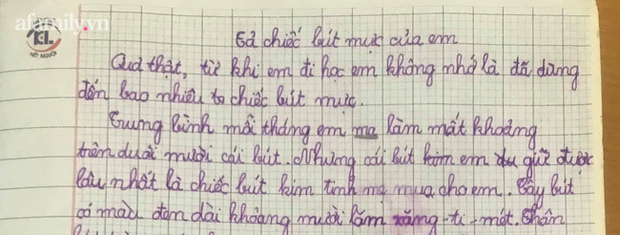 afamily.vn
KL
NÉT NGƯỜI
Tả chiếc bút mực của em
Quả thật, từ khi em đi học em không nhớ là đã dùng
đến bao nhiêu ta chiếc bút mực.
Trung bình mỗi tháng em ma làm mất khoảng
trên dưới mười cái bút. Nhưng cái bút kim em du giữ được
lâu nhất là chiếc bút kim tinh mẹ mua cho em. Cây bút
có màu đen dài khoảng mười lăm xăng-ti-mét. Thân